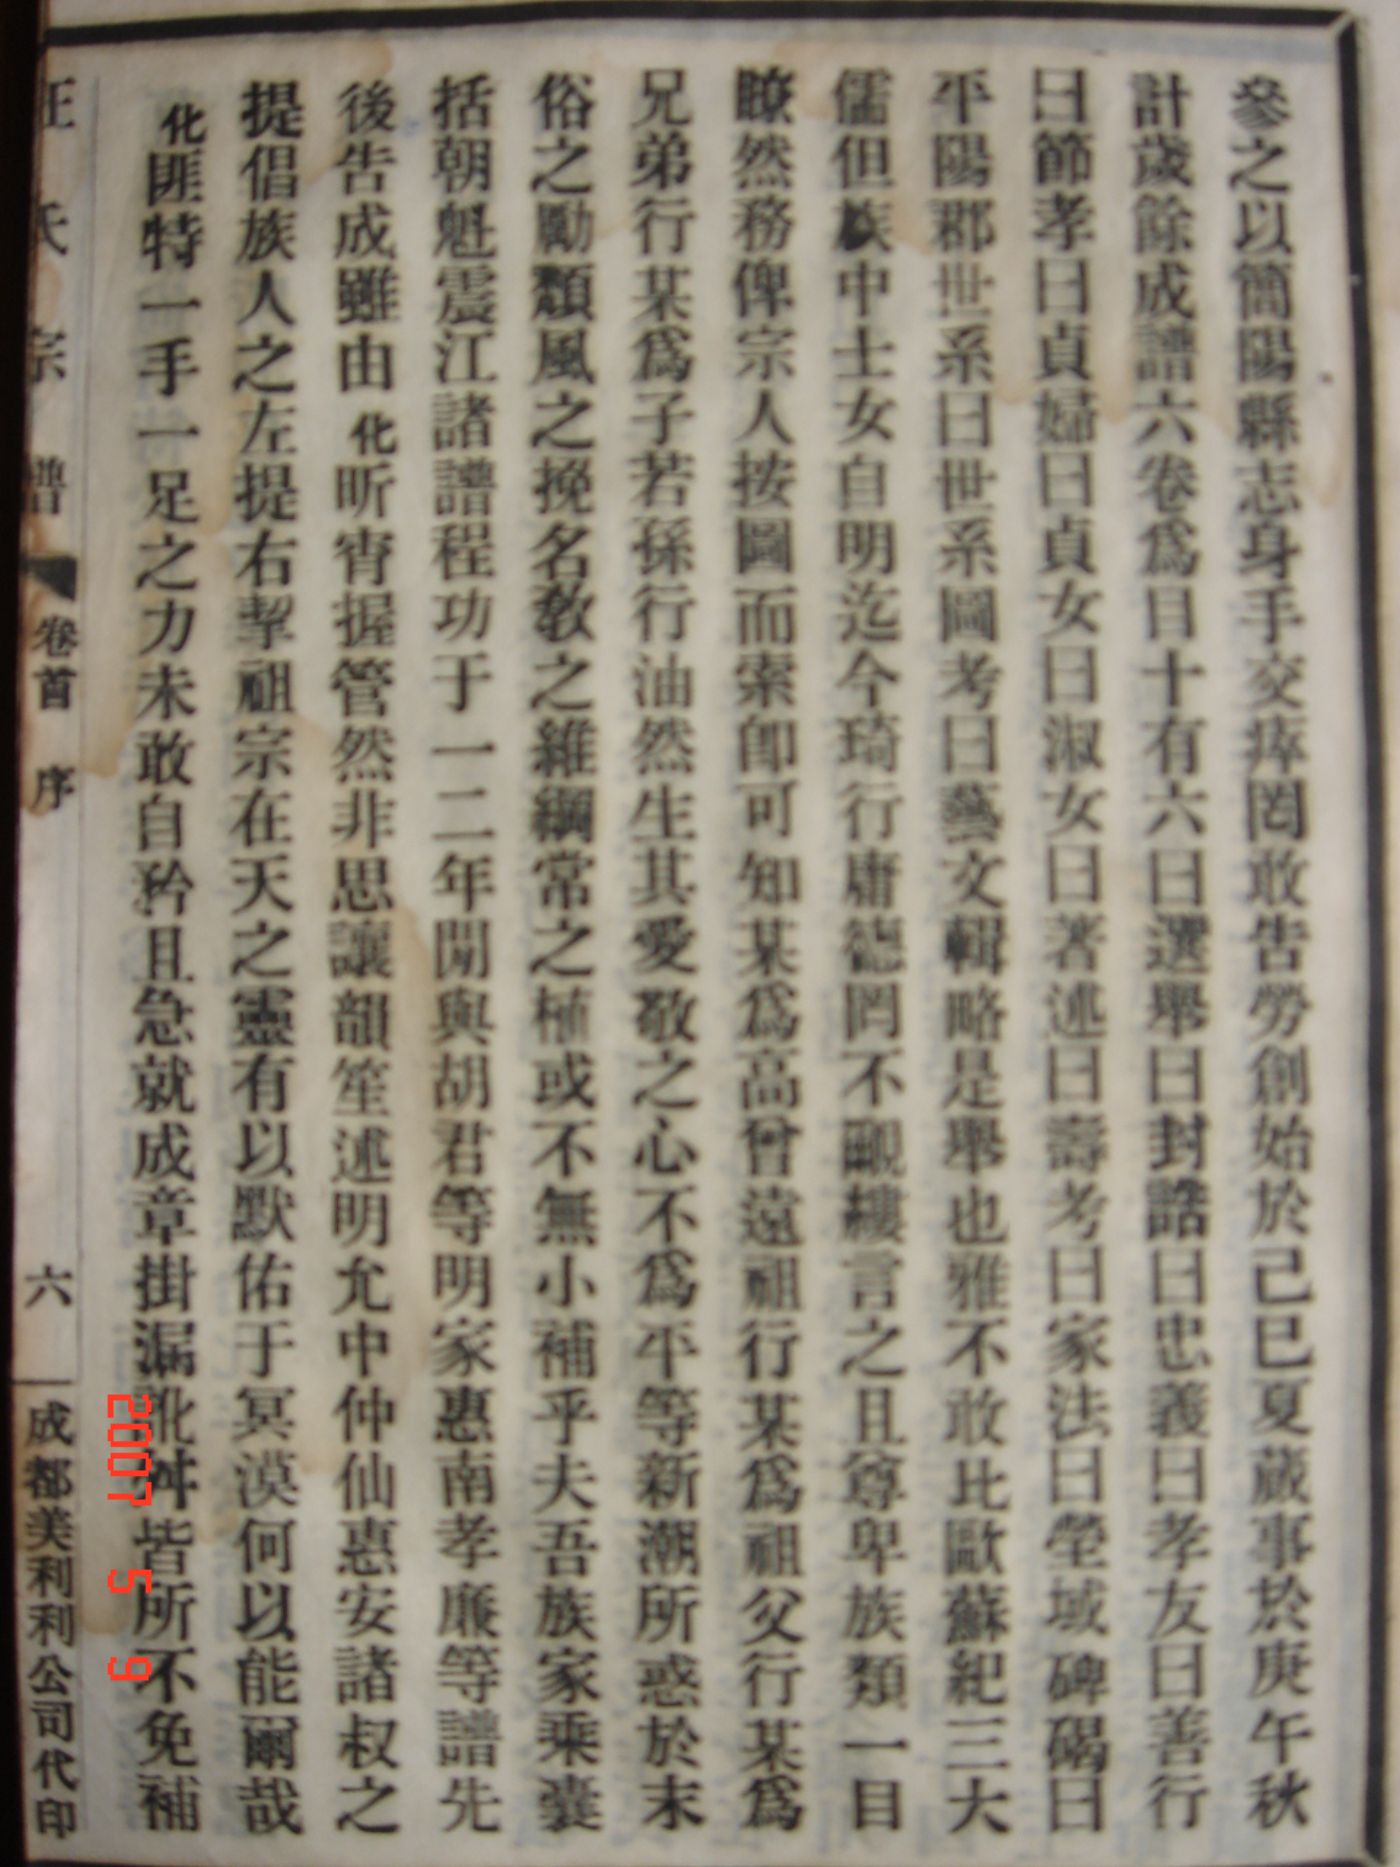 參之以簡陽縣志身手交瘁罔敢告勞創始於己巳夏蕆事於庚午秋
計歲餘成譜六卷為目十有六曰選舉曰封誥曰忠義曰孝友曰善行
曰節孝曰貞婦曰貞女曰淑女曰著述曰壽考曰家法曰塋域碑碣曰
平陽郡世系曰世系圖考曰藝文輯略是舉也雅不敢比歐蘇紀三大
儒但族中士女自明迄今琦行庸德罔不覼縷言之且尊卑族類一目
瞭然務俾宗人按圖而索卽可知某為高曾遠祖行某為祖父行某為
兄弟行某為子若孫行油然生其愛敬之心不為平等新潮所惑於末
俗之勵頹風之挽名教之維綱常之植或不無小補乎夫吾族家乘囊
括朝魁震江諸譜程功于一二年間與胡君等明家惠南孝廉等譜先
後告成雖由化昕宵握管然非思讓韻笙述明允中仲仙惠安諸叔之
提倡族人之左提右挈祖宗在天之靈有以默佑于冥漠何以能爾哉
化匪特一手一足之力未敢自矜且急就成章掛漏訛舛皆所不免補
汪氏宗譜 卷首 序 六 成都美利利公司代印
2007 5 9